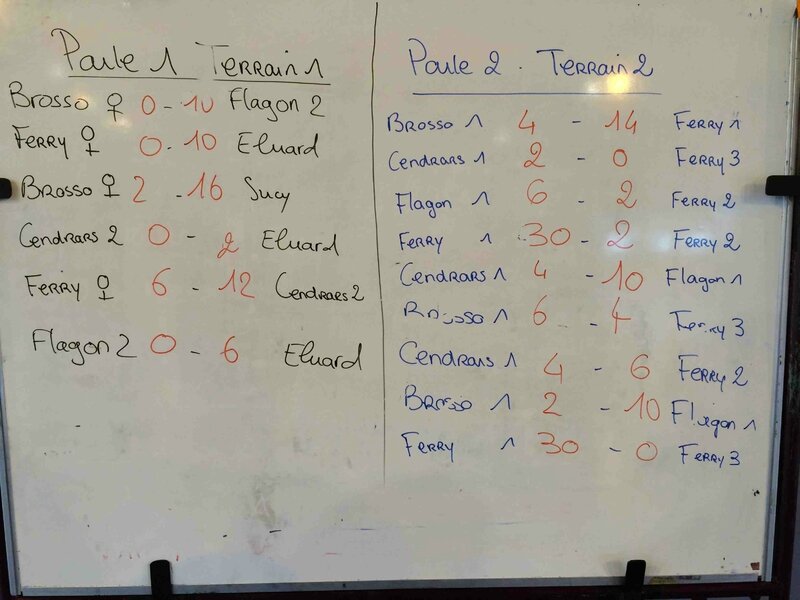 Poule 1 Terrain 1
Brosso ♀ 0 - 10 Flagon 2
Ferry ♀ 0 - 10 Eluard
Brosso ♀ 2 - 16 Sucy
Cendrars 2 0 - 2 Eluard
Ferry ♀ 6 - 12 Cendrars 2
Flagon 2 0 - 6 Eluard
Poule 2 - Terrain 2
Brosso 1 4 - 14 Ferry 1
Cendrars 1 2 - 0 Ferry 3
Flagon 1 6 - 2 Ferry 2
Ferry 1 30 - 2 Ferry 2
Cendrars 1 4 - 10 Flagon 1
Brosso 1 6 - 4 Ferry 3
Cendrars 1 4 - 6 Ferry 2
Brosso 1 2 - 10 Flagon 1
Ferry 1 30 - 0 Ferry 3